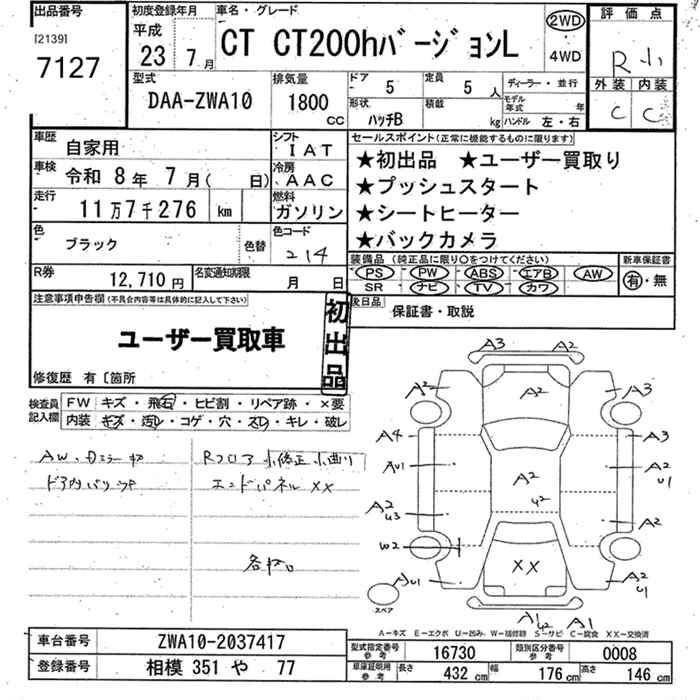 出品番号
[2139]
7127
初度登録年月
平成
23年 7月
車名・グレード
CT CT200hバージョンL
2WD
4WD
評価点
R 小
外装 内装
C C
型式
DAA-ZWA10
排気量
1800
CC
ドア
5
定員
5 人
形状
ハッチB
積載
kg
ディーラー・並行
モデル年式 年
ハンドル 左・右
車歴 自家用
シフト IAT
車検 令和 8年 7月( 日)
冷房 AAC
走行 11万7千276 km
燃料 ガソリン
色 ブラック
色替
色コード
214
R券 12,710円
名変通知期限 月 日
セールスポイント(正常に機能するものに限ります)
★初出品 ★ユーザー買取り
★プッシュスタート
★シートヒーター
★バックカメラ
装備品(純正品に限り○をつけてください)
PS PW ABS エアB AW
SR ナビ TV カワ
新車保証書
有・無
後日品 保証書・取説
注意事項申告欄(不具合内容等は具体的に記入して下さい)
ユーザー買取車
初出品
修復歴 有〔箇所
検査員記入欄
FW キズ・飛石・ヒビ割・リペア跡・×要
内装 キズ・汚レ・コゲ・穴・スレ・キレ・破レ
AW、Dミラーキズ
ドア内バリキズ
Rフロア小修正小曲り
エンドパネル XX
各板口
A3 A2
A2 A2 A3
A4 A3
AU1 A2 A2 U1
A2 U3 U2 A2
W2
XX
AU1 A2 U1
スペア
AU2 A1
A-キズ E-エクボ U-凹み W-補修跡 S-サビ C-腐食 XX-交換済
車台番号 ZWA10-2037417
登録番号 相模 351 や 77
型式指定番号 参考 16730
類別区分番号 参考 0008
車庫証明用 参考 長さ 432 cm 幅 176 cm 高さ 146 cm